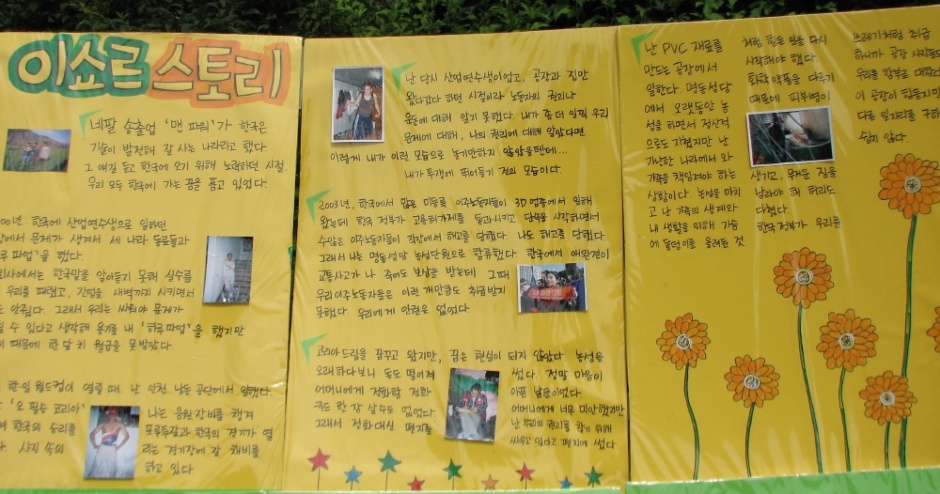 이쇼르 스토리
네팔 송출업 '맨 파워'가 한국은
기술이 발전해 잘 사는 나라라고 했다
그 얘길 듣고 한국에 오기 위해 노력하던 시절
우리 모두 한국에 가는 꿈을 품고 있었다.
00년, 한국에 산업연수생으로 일하던
장에서 문제가 생겨서 세 나라 동료들과
루 파업'을 했다
회사에서는 한국말을 알아듣지 못해 실수를
우리를 때렸고, 잔업을 새벽까지 시키면서
도 안줬다. 그래서 우리는 싸워야 문제가
될 수 있다고 생각해 용기를 내 '하루 파업'을 했지만
때문에 한 달치 월급을 못받았다.
한·일 월드컵이 열릴 때 난 인천 남동 공단에서 일했다
'오 필승 코리아'
한국의 승리를
사진 속의
나는 응원 장비를 챙겨
포루투갈과 한국의 경기가 열
리는 경기장에 갈 채비를
하고 있다.
난 다시 산업연수생이었고, 공장과 집만
왔다갔다 하던 시절이라 노동자의 권리나
운동에 대해 알지 못했다. 내가 좀 더 일찍 우리
문제에 대해, 나의 권리에 대해 알았다면
이렇게 내가 이런 모습으로 놀기만하지 않았을텐데...
내가 투쟁에 뛰어들기 전의 모습이다.
2003년, 한국에서 많은 미등록 이주노동자들이 3D 업종에서 일해
왔는데 한국 정부가 고용허가제를 통과시키고 단속을 시작하면서
수많은 이주노동자들이 직장에서 해고를 당했다. 나도 해고를 당했다.
그래서 나는 명동성당 농성단원으로 합류했다. 한국에서 애완견이
교통사고가 나 죽어도 보상금 받는데 그때
우리 이주노동자들은 이런 개만큼도 취급받지
못했다 우리에게 인권은 없었다.
코리아 드림을 꿈꾸고 왔지만, 꿈은 현실이 되지 않았다 농성을
오래하다보니 돈도 떨어져
어머니에게 전화할 전화
카드 한 장 살수도 없었다
그래서 전화대신 편지를
썼다. 정말 마음이
아픈 날들이었다
어머니에게 너무 미안했지만
난 우리의 권리를 찾기 위해
싸우고 있다고 편지에 썼다.
난 PVC 재료를
만드는 공장에서
일한다. 명동성당
에서 오랫동안 농
성을 하면서 정신적
으로도 지쳤지만 난
가난한 나라에서 와
가족을 책임져야 하는
상황이다 농성을 마치
고 난 가족의 생계와
내 생활을 위해 가슴
에 돌덩이를 올려둔 것
처럼 힘든 일을 다시
시작해야 했다.
화학 약품을 다루기
때문에 피부병이
생기고, 무거운 짐을
날라야 해 허리도
다쳤다.
한국정부가 우리를
쓰레기처럼 취급
하니까 공장 사장들도
우리를 함부로 대한다
이 공장이 힘들지만
다른 일자리를 구하
쉽지 않다